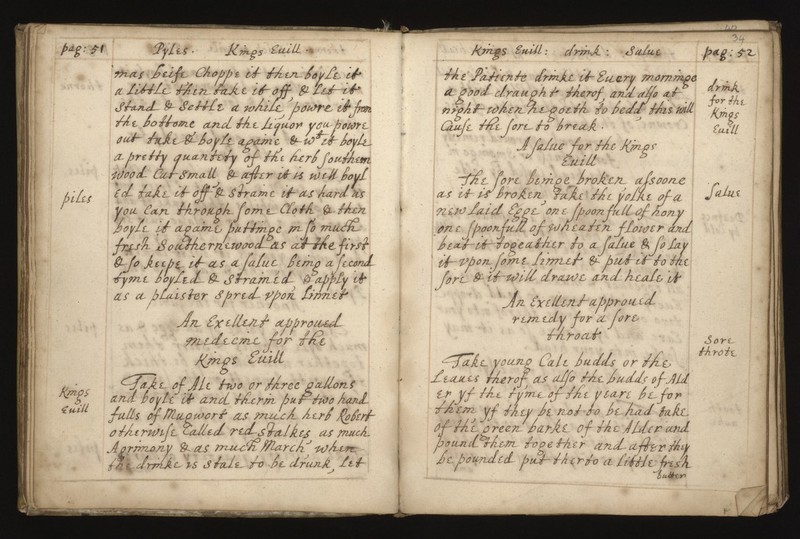 pag: 51
Pyles. Kings Euill.
mas beife Choppe it then boyle it
a little then take it off & let it
stand & settle a while powre it from
the bottome and the liquor you powre
out take & boyle againe & wt it boyle
a pretty quantity of the herb southern
wood Cut small & after it is well boyl
piles
ed take it off & straine it as hard as
you Can through some Cloth & then
boyle it againe puttinge in so much
fresh Southernewood as at the first
& so keepe it as a salue being a second
tyme boyled & strained & apply it
as a plaister spred vpon linnet
An Exellent approued
medecine for the
Kings Euill
Kings
Euill
Take of Ale two or three gallons
and boyle it and therin put two hand
fulls of Mugwort as much herb Robert
otherwise Called red stalkes as much
Agrimony & as much March when
the drinke is stale to be drunk, let
34
Kings Euill: drink: Salue
pag: 52
the Patiente drinke it Euery morninge
a good draught therof and also at
night when he goeth to bedd this will
Cause the sore to break.
drink
for the
Kings
Euill
A salue for the Kings
Euill
The sore beinge broken assoone
as it is broken take the yolke of a
new laid Egge one spoonfull of hony
one spoonfull of wheaten flower and
beat it togeather to a salue & so lay
it vpon some linnet & put it to the
sore & it will drawe and heale it
Salue
An Exellent approued
remedy for a sore
throat
Sore
throte
Take young Cale budds or the
Leaues therof as also the budds of Ald
er yf the tyme of the yeare be for
them yf they be not to be had take
of the green barke of the Alder and
pound them together and after they
be pounded put therto a little fresh
butter